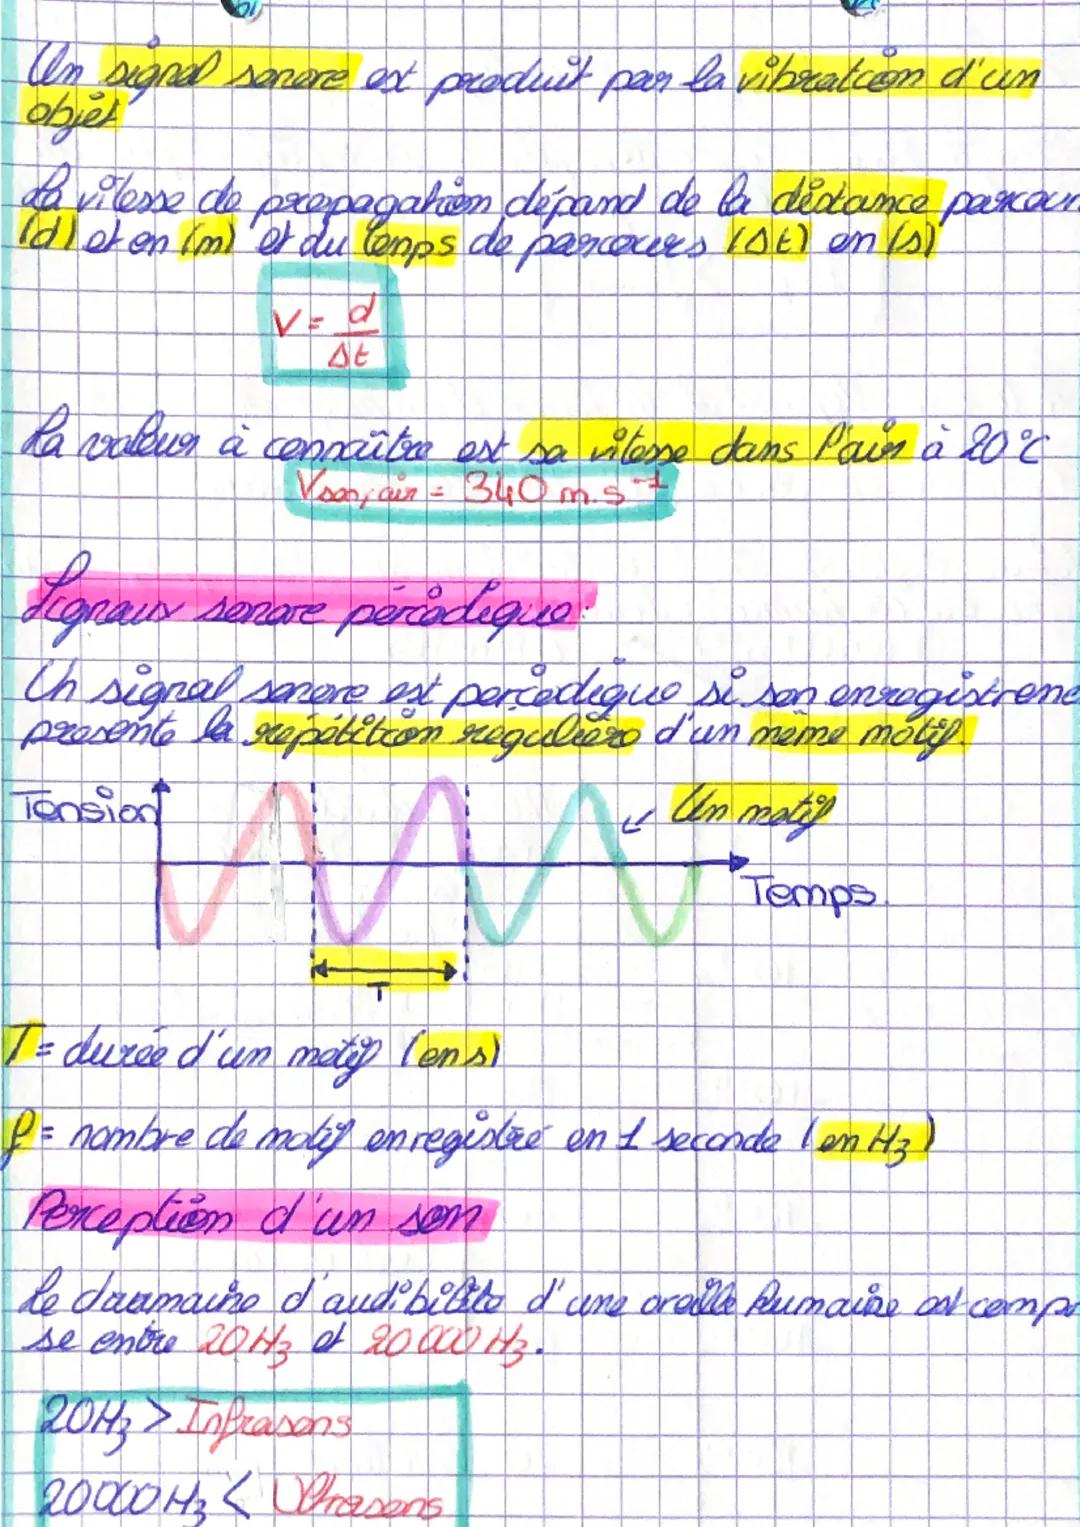 Un signal sonore est produit par la vibration d'un
objet
La vitesse de propagation dépand de la distance parcour
(d) et en (m) et du temps de parcours (Δt) en (s)
V = d
Δt
La valeur à connaître est sa vitesse dans l'air à 20°C
Vson, air = 340 m.s⁻¹
Signaux sonore périodique:
Un signal sonore est périodique si son enregistreme
présente la répétition régulière d'un même motif.
Tension
Un motif
Temps.
T
T = durée d'un motif (en s)
f = nombre de motif enregistré en 1 seconde (en Hz)
Perception d'un son
Le daomaine d'audibilité d'une oreille humaine est compr
se entre 20 Hz et 20 000 Hz.
20Hz > Infrasons
20 000 Hz < Ultrasons